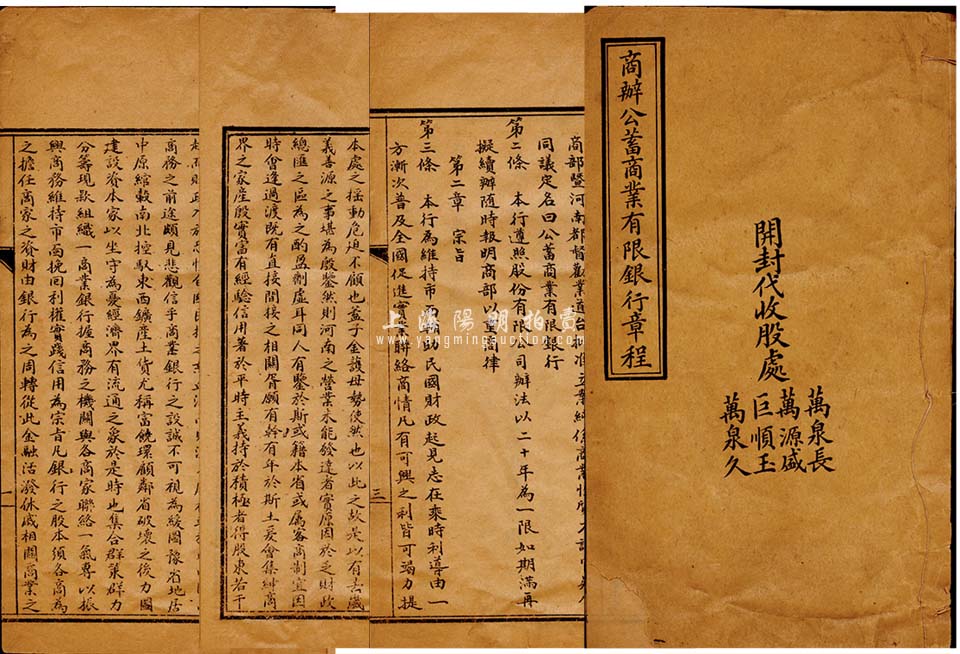 商辦公蓄商業有限銀行章程
開封代收股處
萬泉長
萬源盛
巨順玉
萬泉久
同議定名曰公蓄商業有限銀行
第二條 本行遵照股份有限公司辦法以二十年為一限如期滿再
擬續辦隨時報明商部以重商律
第二章 宗旨
第三條 本行為維持市面輔助民國財政起見志在乘時利導由一
方漸次普及全國促進實業聯絡商情凡有可興之利皆可竭力提
三
本處之搖動危迫不顧也蓋子金護母勢使然也以此之故是以有去歲
義善源之事堪為殷鑒然則河南之營業未能發達者實原因於之財政
總匯之區為之酌盈劑虛耳同人有鑒於斯或籍本省或屬客商制宜因
時會逢過渡既有直接間接之相關胥願有幹有年於斯土爰會集紳商
界之家產殷實富有經驗信用著於平時主義持於積極者得股東若干
商務之前途頗見悲觀信乎商業銀行之設誠不可視為緩圖豫省地居
中原綰轂南北控馭東西鑛產土貨尤稱富饒環顧鄰省破壞之後力圖
建設資本家以坐守為憂經濟界有流通之象於是時也集合群策群力
分籌現款組織一商業銀行握商務之機關與各商家聯絡一氣專以振
興商務維持市面挽回利權實踐信用為宗旨凡銀行之股本須各商為
之擔任商家之資財由銀行為之周轉從此金融活潑休戚相關商業之
一
上海陽明拍賣
www.yangmingauction.com